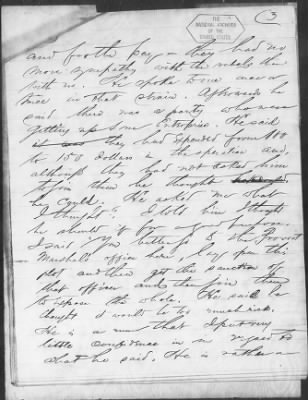 3
THE
NATIONAL ARCHIVES
OF THE
UNITED STATES
and for the pay - they had no
more sympathy with the rebels than
with us. He spoke to me once or
twice in that strain. Afterwards he
said there was a party who were
getting up some Enterprise. He said
they had expended from 100
to 150 dollars in the operation and,
although they had not asked him
to join them he thought
they would. He asked me what
I thought. I told him I thought
he should if for a good purpose.
I said You better go to the Provost
Marshal's office here, lay open this
plot and then get the sanction of
that officer and then join them
to expose the whole. He said he
thought it would be too much risk.
He is a man that I put very
little confidence in in regard to
what he said. He is rather a